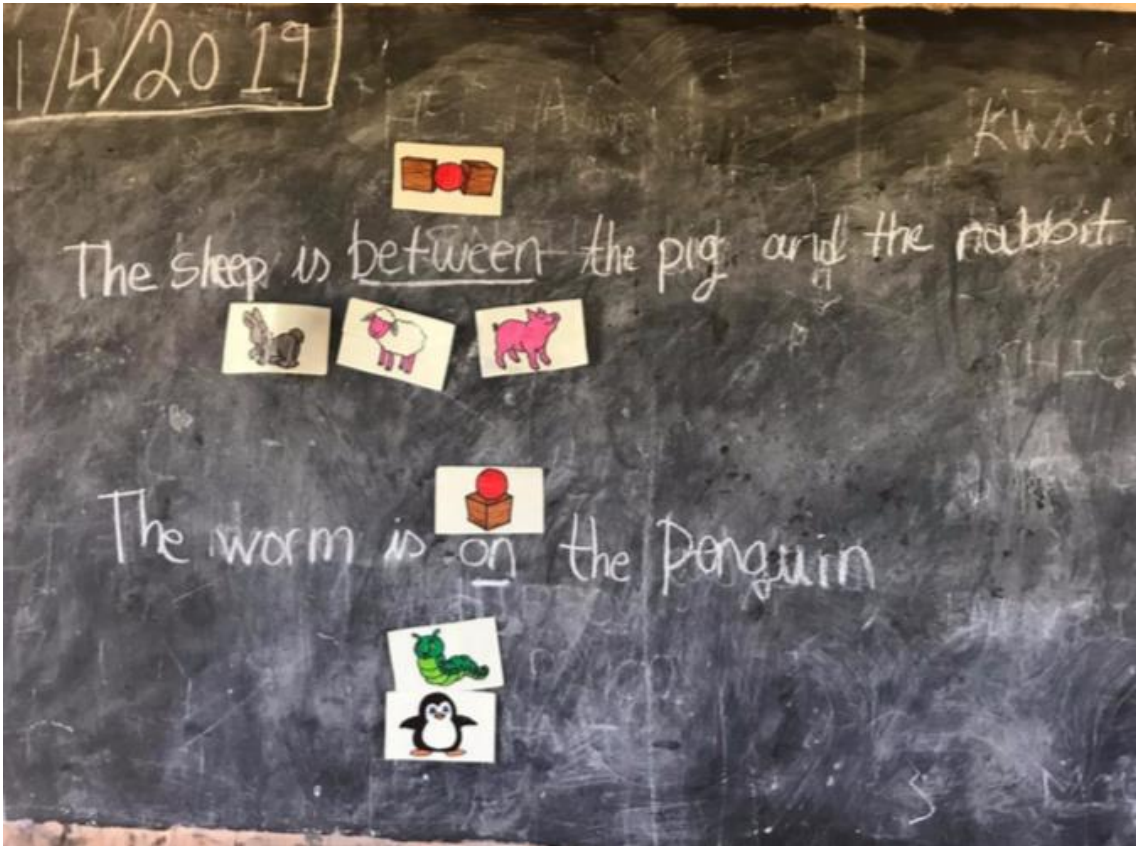 1/4/2019
KWA
The sheep is between the pig and the rabbit
The worm is on the Penguin